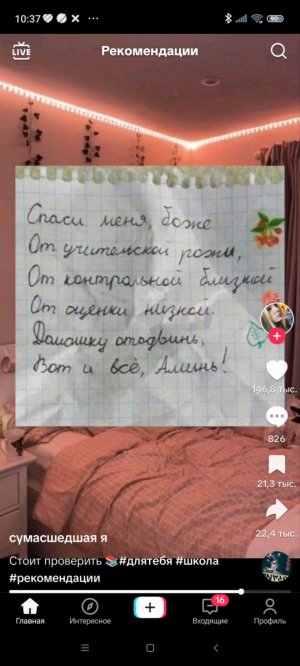 10:37
LIVE
Рекомендации
Спаси меня, боже
От учительской рожи,
От контрольной близкой
От оценки низкой.
Домашку отодвинь,
Вот и всё, Аминь!
146,8 тыс.
826
21,3 тыс.
22,4 тыс.
сумасшедшая я
Стоит проверить 📚#длятебя #школа
#рекомендации
16
Главная
Интересное
Входящие
Профиль